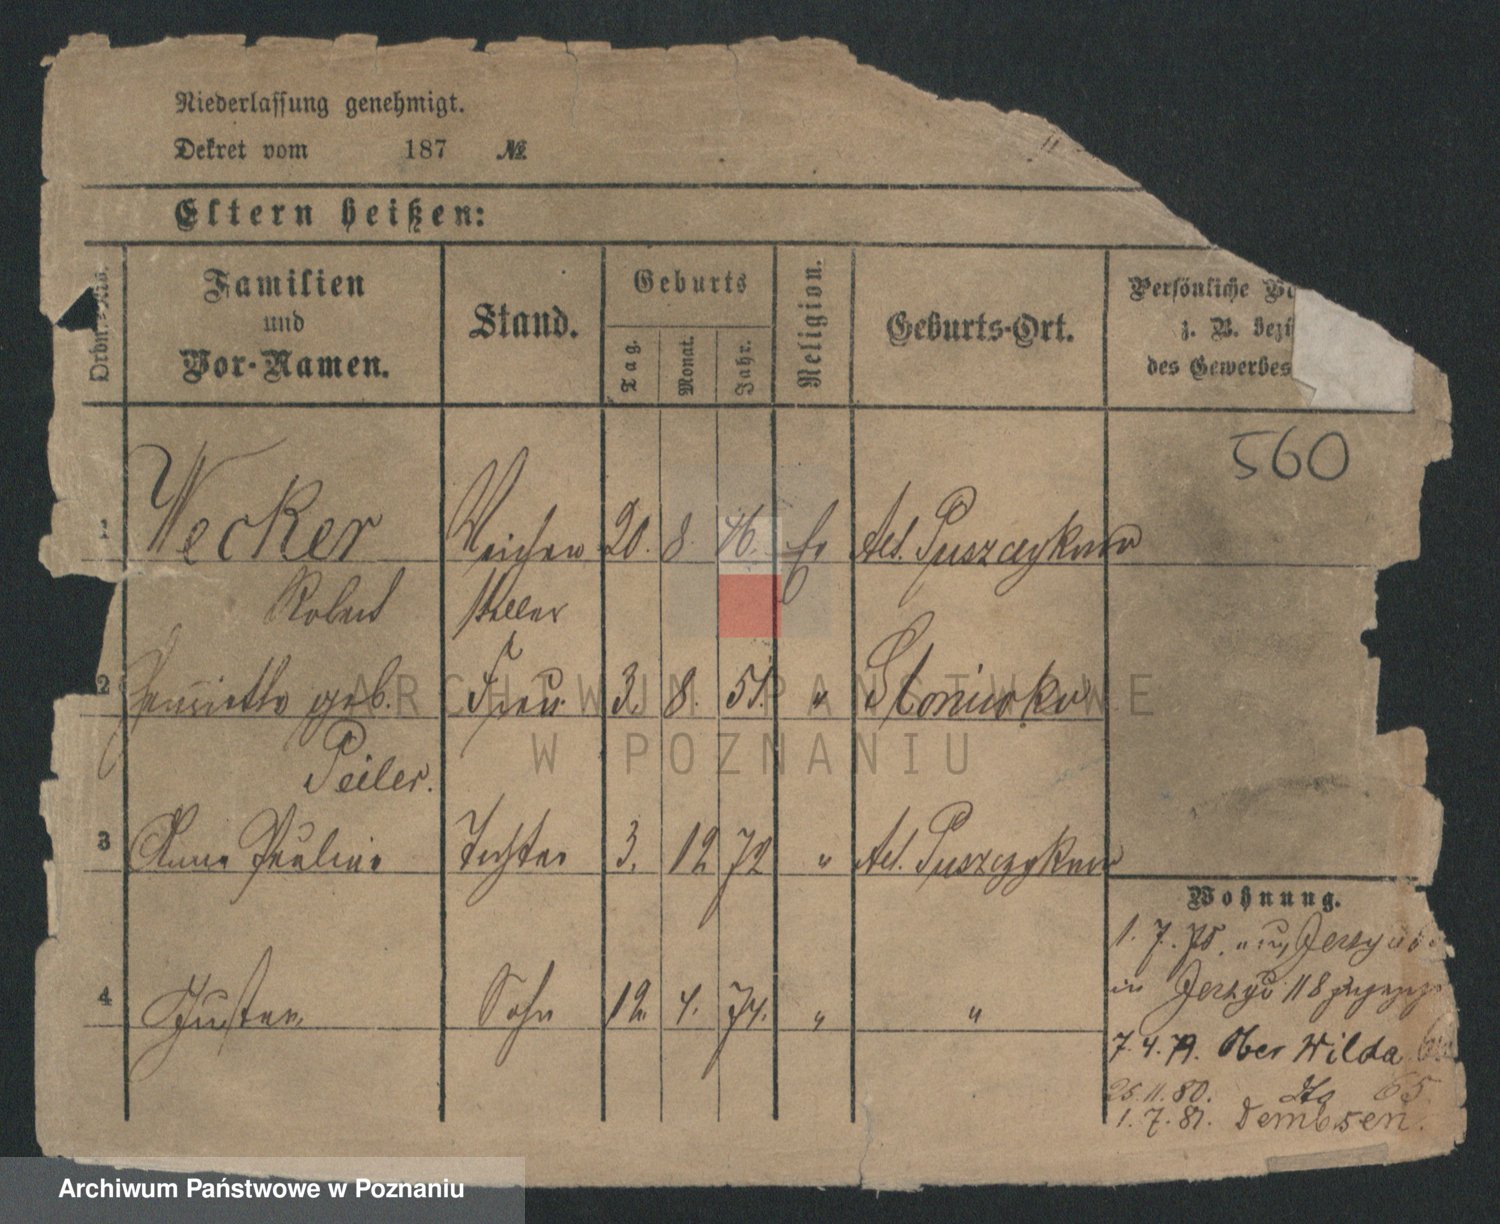 Niederlassung genehmigt.
Dekret vom 187 №
Eltern heißen:
Ordnungs-No.
Familien und Vor-Namen.
Stand.
Geburts
Tag. Monat. Jahr.
Religion.
Geburts-Ort.
Persönliche
z. B. bezü
des Gewerbes
560
1 Wecker Weichen 20. 8. 46. Ev Alt. Puszczykowo
Robert steller
2 Henriette geb. Frau 3. 8. 51. " Sloniawka
Peiler.
3 Anna Pauline Tochter 3. 12 72 " Alt. Puszczykowo
4 Gustav Sohn 12. 4. 74. " "
Wohnung.
1. 7. 75.
in Jerzyce 118
7. 4. 79. Ober Wilda
25. 11. 80. 65
1. 7. 81. Dembsen.
ARCHIWUM PAŃSTWOWE
W POZNANIU
Archiwum Państwowe w Poznaniu